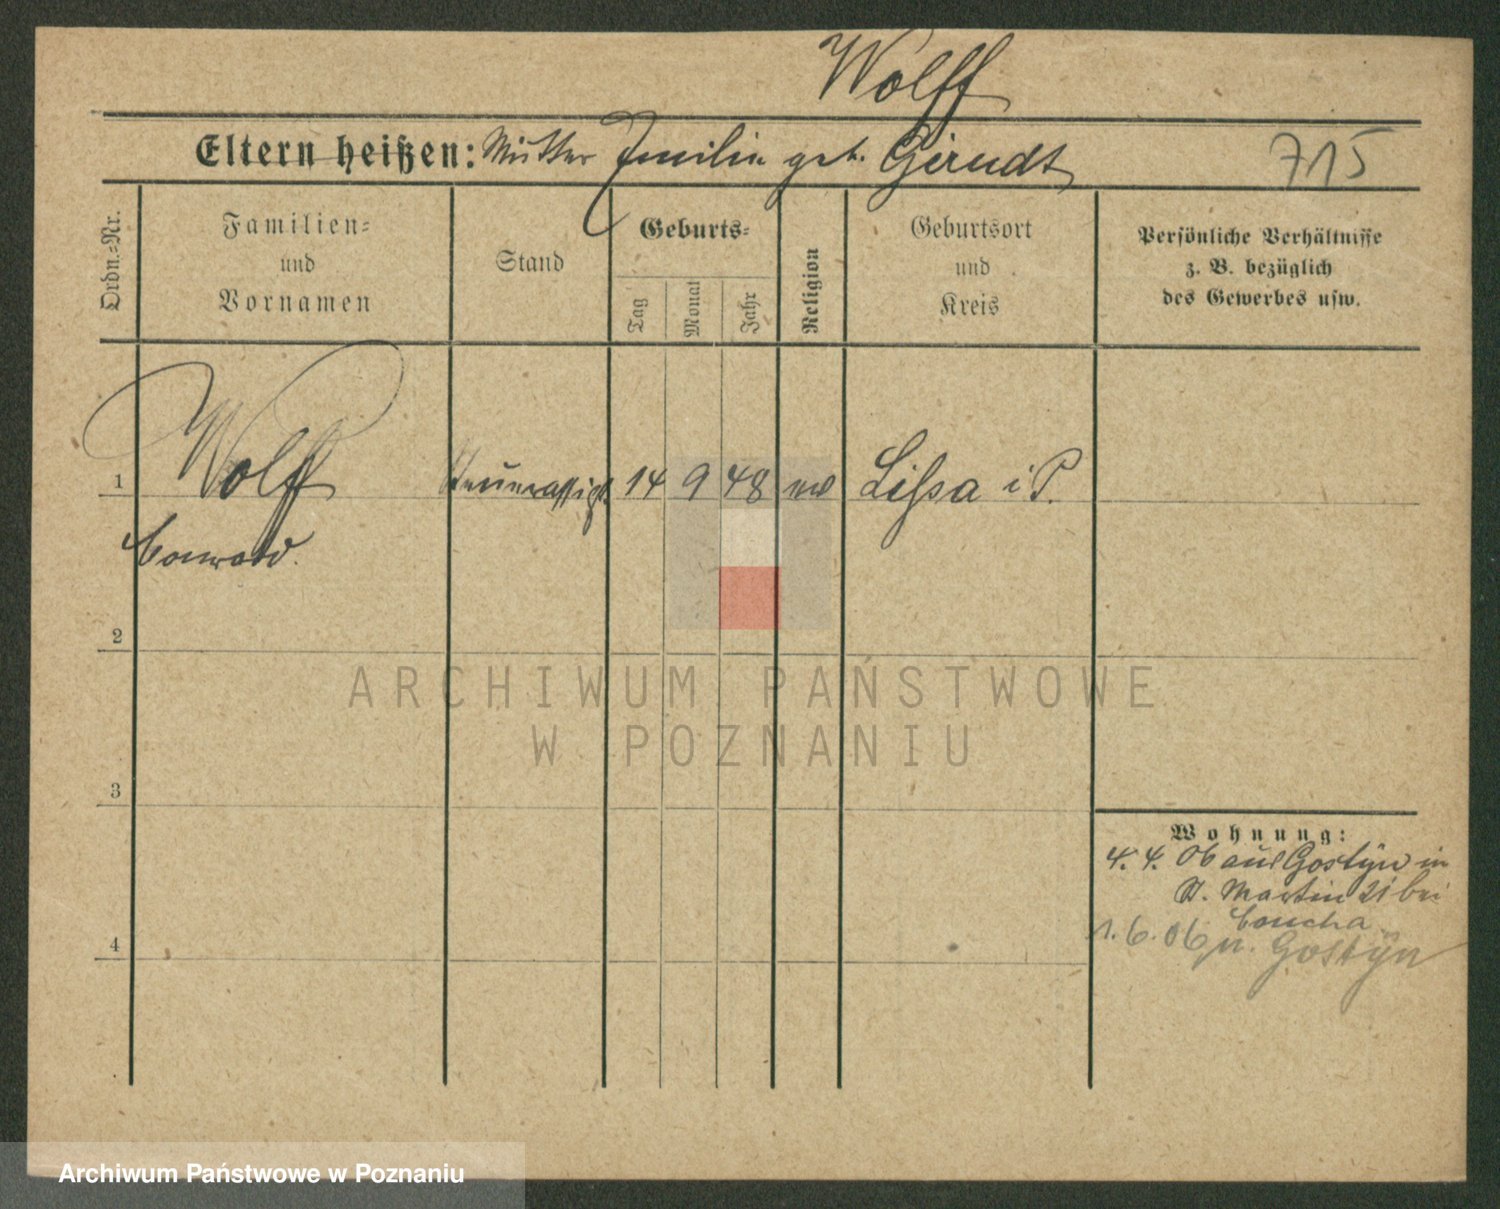 Wolff
Eltern heißen: Mutter Emilie geb. Gerndt
715
Ordn.-Nr.
Familien-
und
Vornamen
Stand
Geburts-
Tag
Monat
Jahr
Religion
Geburtsort
und
Kreis
Persönliche Verhältnisse
z. B. bezüglich
des Gewerbes usw.
1
Wolff 14 9 48 Lissa i P.
Conrad.
2
ARCHIWUM PAŃSTWOWE
W POZNANIU
3
Wohnung:
4. 4. 06 aus Gostyn in
St. Martin 21 bei
1. 6. 06 n. Gostyn
4
Archiwum Państwowe w Poznaniu